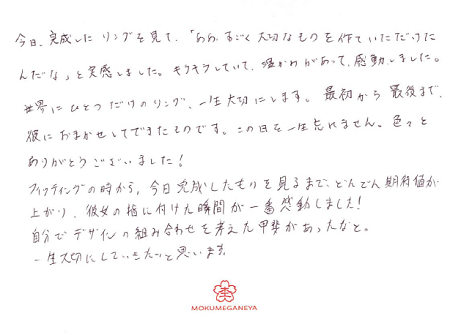 今日、完成したリングを見て、「ああ、すごく大切なものを作っていただけた
んだな」と実感しました。キラキラしていて、温かみがあって、感動しました。
世界にひとつだけのリング、一生大切にします。最初から最後まで、
彼におまかせしてできたものです。この日を一生忘れません。色々と
ありがとうございました!
フィッティングの時から、今日完成したものを見るまで、どんどん期待値が
上がり、彼女の指に付けた瞬間が一番感動しました!
自分でデザインの組み合わせを考えた甲斐があったなと。
一生大切にしていきたいと思います。
MOKUMEGANEYA